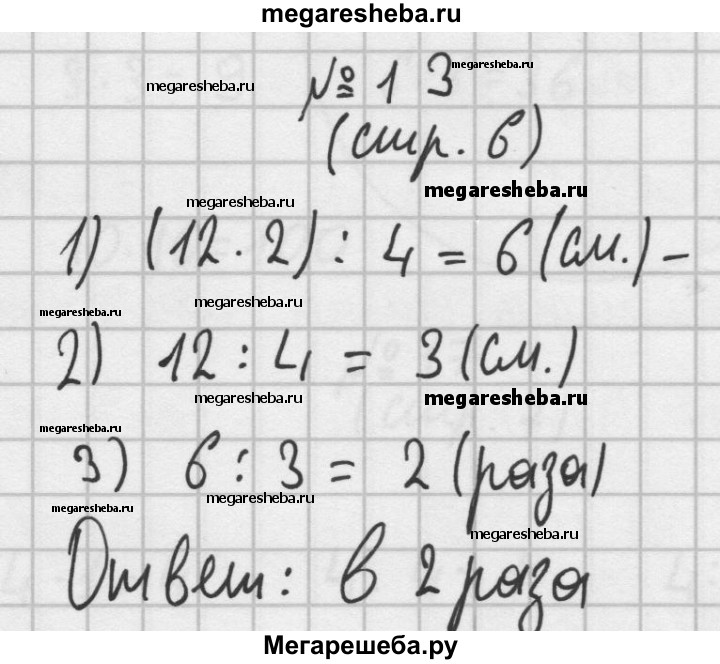 megaresheba.ru
megaresheba.ru № 13 megaresheba.ru
(стр. 6)
megaresheba.ru megaresheba.ru
1) (12 · 2) : 4 = 6 (см.) –
megaresheba.ru megaresheba.ru
2) 12 : 4 = 3 (см.)
megaresheba.ru megaresheba.ru
megaresheba.ru
3) 6 : 3 = 2 (раза)
megaresheba.ru megaresheba.ru
megaresheba.ru
Ответ: в 2 раза
Мегарешеба.ру